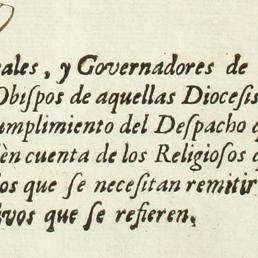 eales, y Governadores de
Obispos de aquellas Diocesis
umplimiento del Despacho q
èn cuenta de los Religiosos q
os que se necesitan remitir
vos que se refieren.